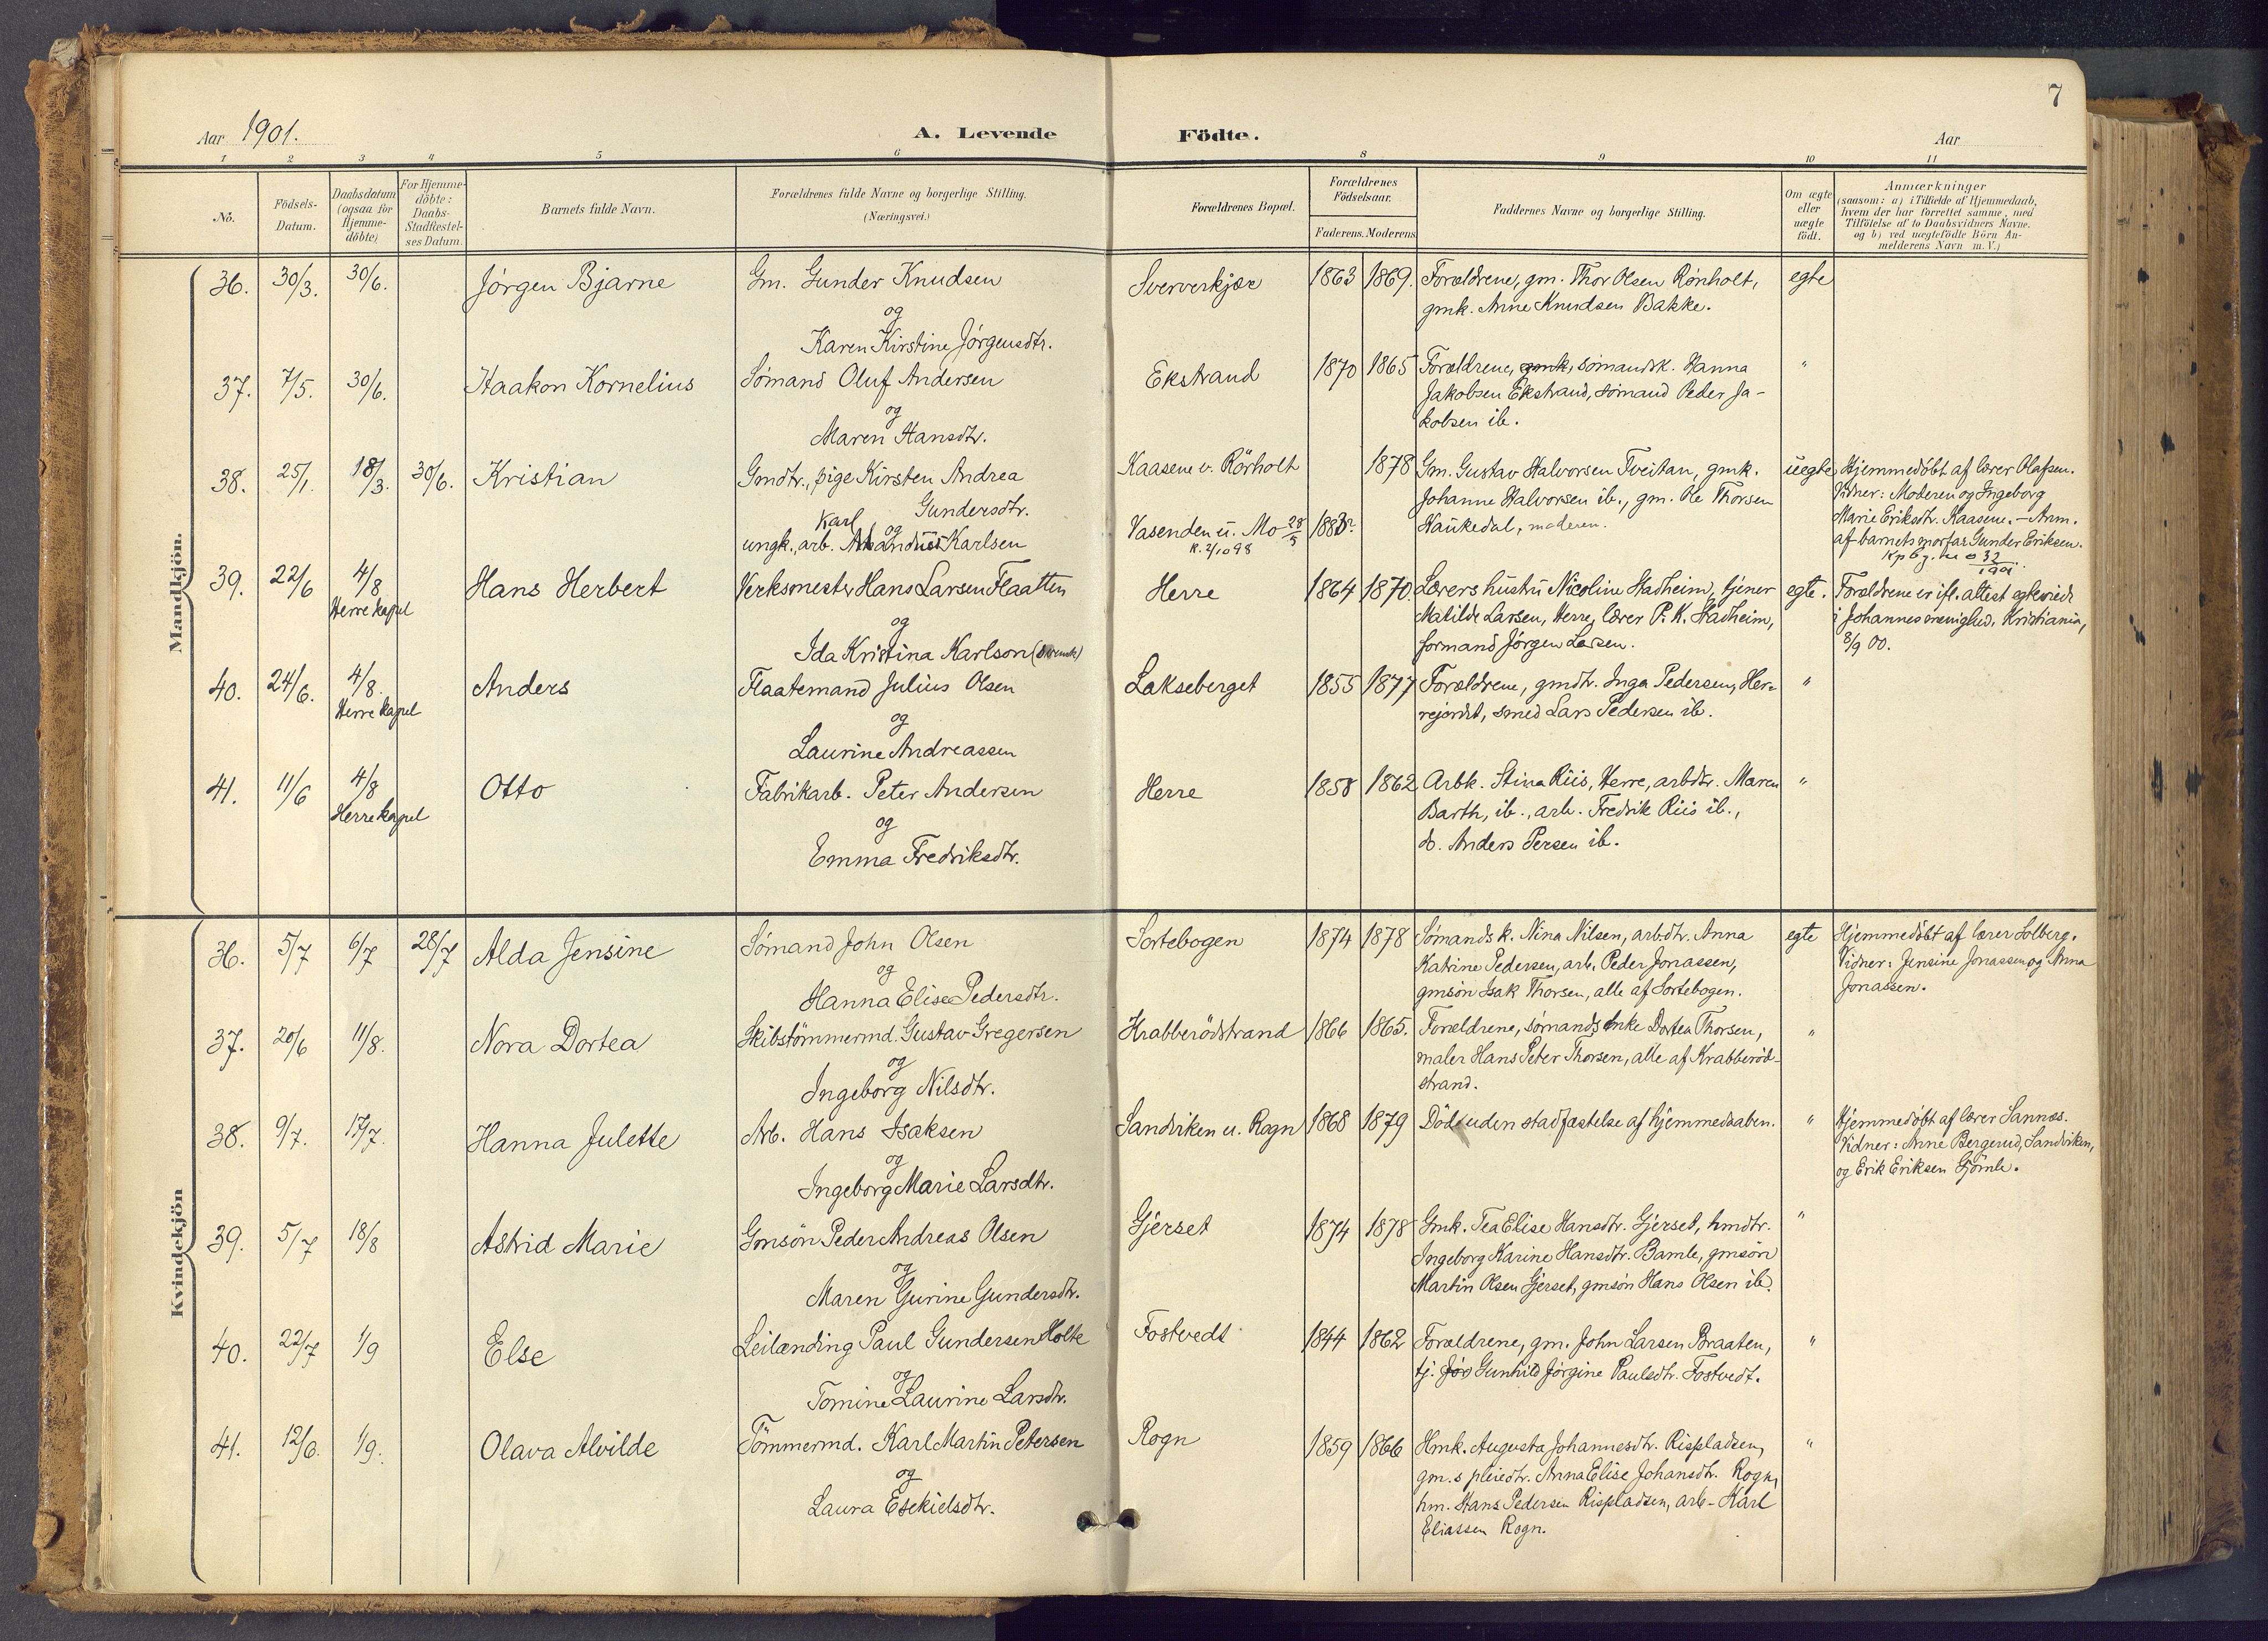 7
Aar 1901.
A. Levende Födte.
Aar
1 2 3 4 5 6 8 9 10 11
No.
Födsels-Datum.
Daabsdatum (ogsaa for Hjemme-döbte)
For Hjemme-döbte: Daabs-Stadfæstel-ses Datum.
Barnets fulde Navn.
Forældrenes fulde Navne og borgerlige Stilling. (Næringsvei.)
Forældrenes Bopæl.
Forældrenes Födselsaar.
Faderens. Moderens.
Faddernes Navne og borgerlige Stilling.
Om ægte eller uægte födt.
Anmærkninger
(saasom: a) i Tilfælde af Hjemmedaab,
hvem der har forrettet samme, med
Tilföielse af to Daabsvidners Navne.
og b) ved uægtefödte Börn An-
melderens Navn m. V.)
Mandkjön.
36. 30/3. 30/6. Jörgen Bjarne
Gm. Gunder Knudsen
og
Karen Kirstine Jörgensdtr.
Sververkjær 1863 1869.
Forældrene, gm. Thor Olsen Rönholt,
gmk. Anne Knudsen Bakke.
egte
37. 7/5. 30/6. Haakon Kornelius
Sömand Oluf Andersen
og
Maren Hansdtr.
Ekstrand 1870 1865
Forældrene, gmk, sömandsk. Hanna
Jakobsen Ekstrand, sömand Peder Ja-
kobsen ib.
"
38. 25/1. 18/3. 30/6. Kristian
Gmdtr., pige Kirsten Andrea
Gundersdtr.
Karl og
ungk., arb. Karlsen
Kaasene v. Rörholt 1878
Vasenden u. Mo 28/5
K. 2/10 98
Gm. Gustav Halvorsen Tveitan, gmk.
Johanne Halvorsen ib., gm. Ole Thorsen
Haukedal, moderen.
uegte
Hjemmedöbt af lærer Olafsen.
Vidner: Moderen og Ingeborg
Marie Eriksdtr. Kaasene. - Anm.
af barnets morfar Gunder Eriksen.
39. 22/6 4/8 Hans Herbert
Herre kapel
Verksmester Hans Larsen Flaatten
og
Ida Kristina Karlson (svensk)
Herre 1864 1870.
Lærers hustru Nicoline Stadheim, tjener
Matilde Larsen, Herre, lærer P. K. Stadheim,
formand Jörgen Larsen.
egte.
Forældrene er ifl. attest egteviede
i Johannesmenighed, Kristiania,
8/9 00.
40. 24/6. 4/8. Anders
Herre kapel
Flaatemand Julius Olsen
og
Laurine Andreassen
Lakseberget 1855 1877
Forældrene, gmdtr. Inga Pedersen, Her-
rejordet, smed Lars Pedersen ib.
"
41. 11/6 4/8 Otto
Herre kapel
Fabrikarb. Peter Andersen
og
Emma Fredriksdtr.
Herre 1858 1862
Arbk. Stina Riis, Herre, arbdtr. Maren
Barth, ib., arb. Fredrik Riis ib.,
do. Anders Persen ib.
"
Kvindekjön
36. 5/7 6/7 28/7 Alda Jensine
Sömand John Olsen
og
Hanna Elise Pedersdtr.
Sortebogen 1874 1878
Sömandsk. Nina Nilsen, arbdtr. Anna
Katrine Pedersen, arb. Peder Jonassen,
gmsön Isak Thorsen, alle af Sortebogen.
egte
Hjemmedöbt af lærer Solberg.
Vidner: Jensine Jonassen og Anna
Jonassen.
37. 20/6 11/8. Nora Dortea
Skibstömmermd. Gustav Gregersen
og
Ingeborg Nilsdtr.
Krabberödstrand 1866 1865.
Forældrene, sömands enke Dortea Thorsen,
maler Hans Peter Thorsen, alle af Krabberöd-
strand.
"
38. 9/7. 17/7. Hanna Julette
Arb. Hans Isaksen
og
Ingeborg Marie Larsdtr.
Sandviken u. Rogn 1868 1879
Död uden stadfæstelse af hjemmedaaben.
"
Hjemmedöbt af lærer Sannes.
Vidner: Anne Bergerud, Sandviken,
og Erik Eriksen Gjömle.
39. 5/7 18/8 Astrid Marie
Gmsön Peder Andreas Olsen
og
Maren Gurine Gundersdtr.
Gjerset 1874 1878
Gmk. Tea Elise Hansdtr. Gjerset, hmdtr.
Ingeborg Karine Hansdtr. Bamle, gmsön
Martin Olsen Gjerset, gmsön Hans Olsen ib.
"
40. 22/7 1/9 Else
Leilænding Paul Gundersen Holte
og
Tomine Laurine Larsdtr.
Fostvedt 1844 1862
Forældrene, gm. John Larsen Braaten,
tj. Jör Gunhild Jörgine Paulsdtr. Fostvedt.
"
41. 12/6. 1/9. Olava Alvilde
Tömmermd. Karl Martin Petersen
og
Laura Esekielsdtr.
Rogn 1859 1866
Hmk. Augusta Johannesdtr. Rispladsen,
gm.s pleiedtr. Anna Elise Johansdtr. Rogn,
hm. Hans Pedersen Rispladsen, arb. Karl
Eliassen Rogn.
"